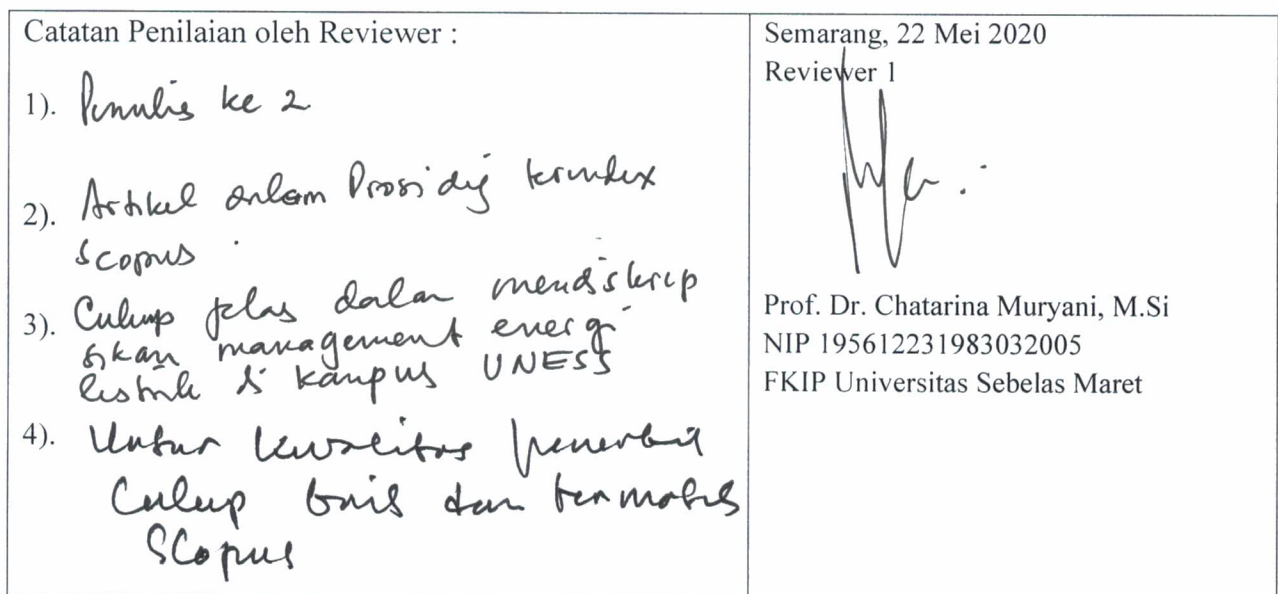 Catatan Penilaian oleh Reviewer :
1). Penulis ke 2
2). Artikel dalam Prosidig terindex
Scopus
3). Cukup jelas dalam mendiskrip
sikan management energi
listrik di kampus UNESS
4). Untuk kwalitas penerbit
Cukup baik dan
Scopus
Semarang, 22 Mei 2020
Reviewer 1
Prof. Dr. Chatarina Muryani, M.Si
NIP 195612231983032005
FKIP Universitas Sebelas Maret